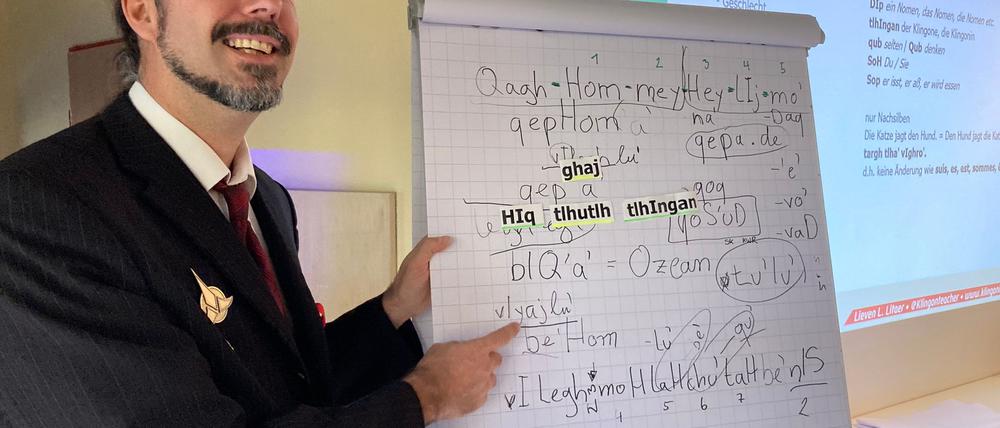 1 2 3 4 5
Qagh-Hom-mey Hey-LIj-mo'
qepHom 'a' na -Daq
qepa.de
ghaj
-'e'
qep'a'
HIq tlhutlh tlhIngan
-vo'
-vaD
bIQ'a' = Ozean tu'lu'
vIyajlu'
be'Hom -lu'
4 5 6 7
2
Geschlecht
DIp ein Nomen, das Nomen, die Nomen etc.
tlhIngan der Klingone, die Klingonin
qub selten / Qub denken
SoH Du / Sie
Sop er isst, er aß, er wird essen
nur Nachsilben
Die Katze jagt den Hund. = Den Hund jagt die
targh tlha' vIghro'.
d.h. keine Änderung wie suis, es, est, sommes,
Lieven L. Litaer • @Klingonteacher •